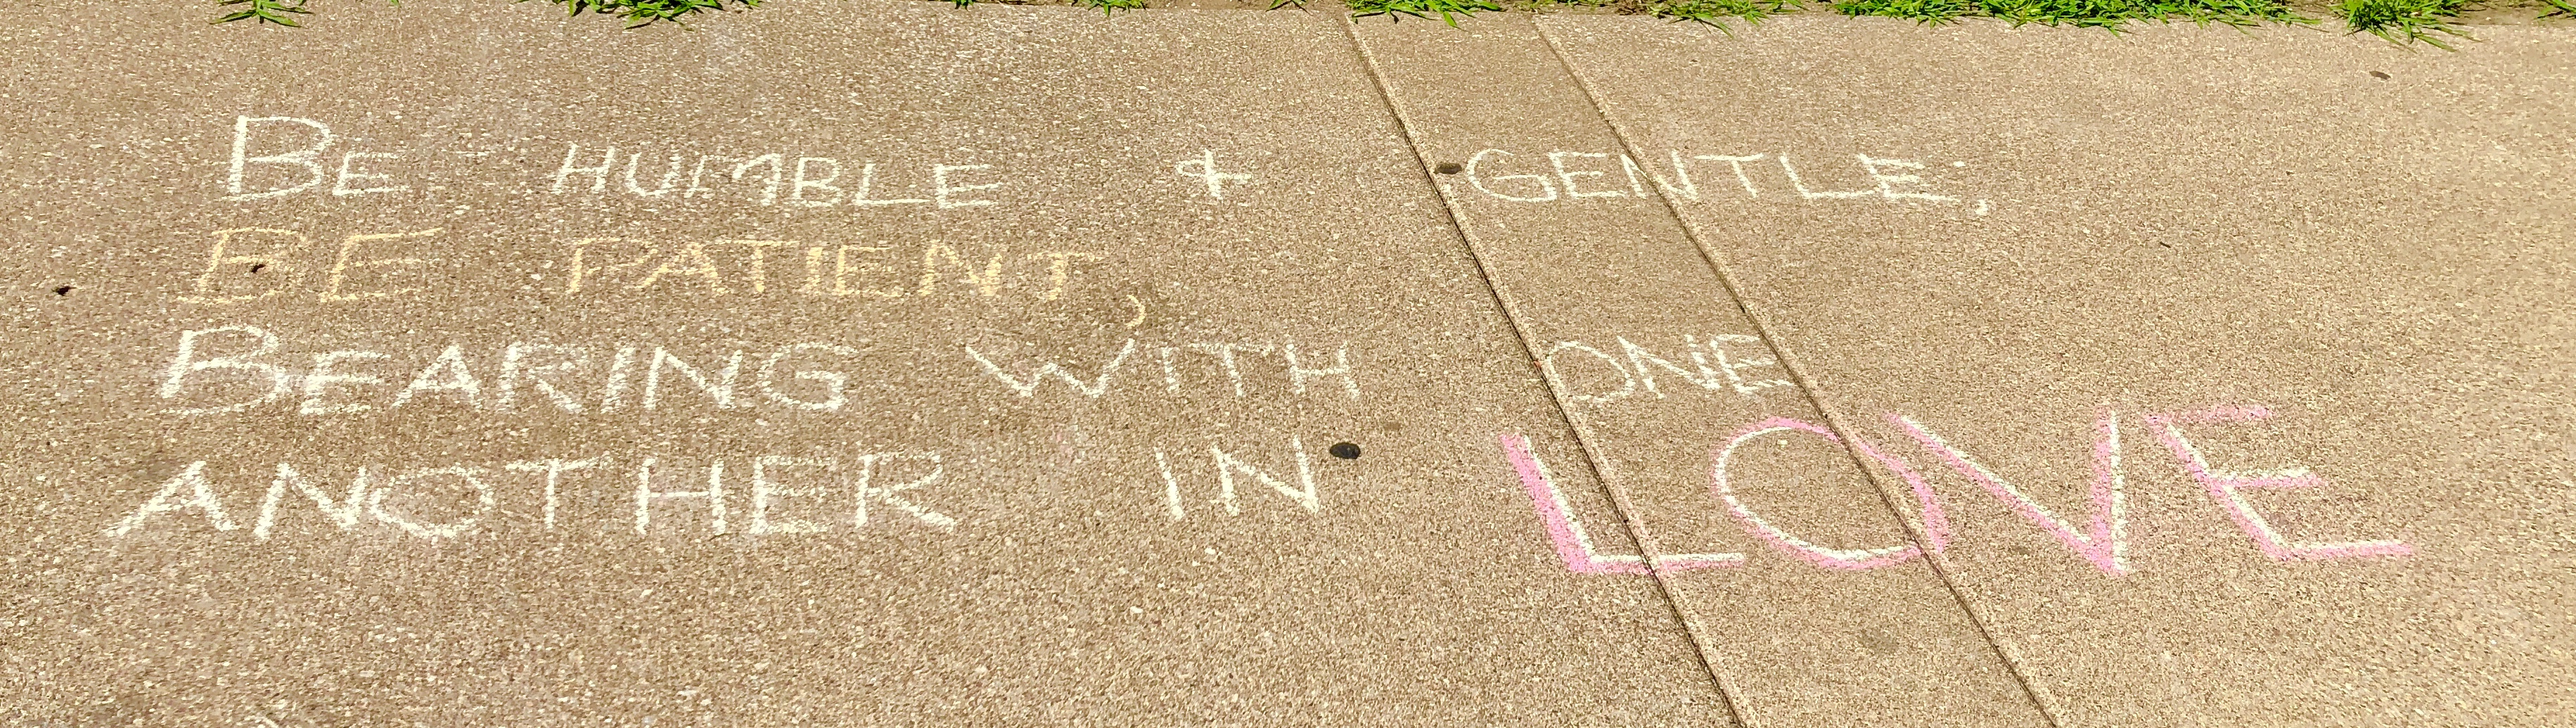 BE HUMBLE + GENTLE;
BE PATIENT,
BEARING WITH ONE
ANOTHER IN LOVE